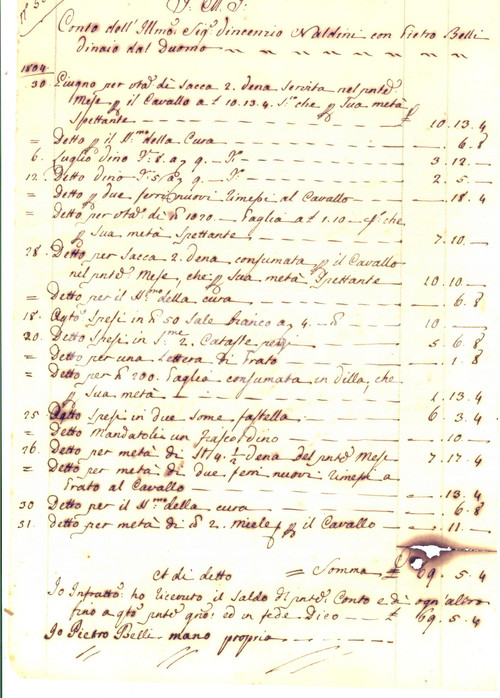 Conto dell'Illmo: Sigr: Vincenzio Naldini con Pietro Belli
dinaio dal Duomo
1804
30 Giugno per vta: di Sacca 2. Vena servita nel pnte:
Mese p il Cavallo a £ 10.13.4 che p Sua metà
Spettante £ 10.13.4
= Detto p il della Cura 6.8
6. Luglio dino 8. a 9. 3.12.
12. Detto dino 5/a 9. 2.5.
= Detto p due ferri nuovi rimessi al Cavallo 18.4
= Detto per vta: di 1020. Paglia a £ 1.10 che
p Sua metà Spettante 7.10.
28. Detto per Sacca 2. Vena consumata p il Cavallo
nel pnte: Mese, che p Sua metà Spettante 10.10.
= Detto per il della cura 6.8
18. Agto: Spesi in 50 Sale bianco a 4. 10.
20. Detto Spesi in 2. Cataste pezzi 5.6.8
= Detto per una Lettera di Prato 1.8
= Detto per 200. Paglia consumata in Villa, che
p Sua metà 1.13.4
25. Detto Spesi in due Some fastella 6.3.4
= Detto Mandatoli un fiasco dino 10.
26. Detto per metà di 4 1/2 Vena del pnte: Mese 7.17.4
= Detto per metà di due ferri nuovi rimessi a
Prato al Cavallo 13.4
30 Detto per il della cura 6.8
31. Detto per metà di 2. Miele p il Cavallo 11.
Ct di detto = Somma £ 69.5.4
Io Infratto: ho ricevuto il Saldo di pnte: Conto e di ogn'altro
fino a qto: pnte gno: ed in fede Dico £ 69.5.4
Io Pietro Belli mano propria